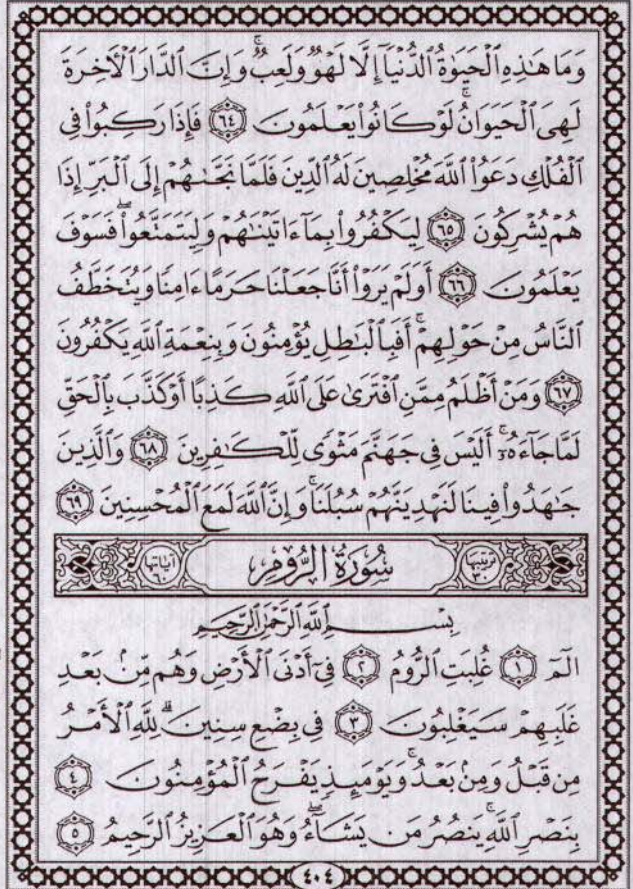 وَمَا هَٰذِهِ ٱلْحَيَوٰةُ ٱلدُّنْيَآ إِلَّا لَهْوٌ وَلَعِبٌ ۚ وَإِنَّ ٱلدَّارَ ٱلْـَٔاخِرَةَ
لَهِىَ ٱلْحَيَوَانُ ۚ لَوْ كَانُوا۟ يَعْلَمُونَ ٦٤ فَإِذَا رَكِبُوا۟ فِى
ٱلْفُلْكِ دَعَوُا۟ ٱللَّهَ مُخْلِصِينَ لَهُ ٱلدِّينَ فَلَمَّا نَجَّىٰهُمْ إِلَى ٱلْبَرِّ إِذَا
هُمْ يُشْرِكُونَ ٦٥ لِيَكْفُرُوا۟ بِمَآ ءَاتَيْنَٰهُمْ وَلِيَتَمَتَّعُوا۟ ۖ فَسَوْفَ
يَعْلَمُونَ ٦٦ أَوَلَمْ يَرَوْا۟ أَنَّا جَعَلْنَا حَرَمًا ءَامِنًا وَيُتَخَطَّفُ
ٱلنَّاسُ مِنْ حَوْلِهِمْ ۚ أَفَبِٱلْبَٰطِلِ يُؤْمِنُونَ وَبِنِعْمَةِ ٱللَّهِ يَكْفُرُونَ
٦٧ وَمَنْ أَظْلَمُ مِمَّنِ ٱفْتَرَىٰ عَلَى ٱللَّهِ كَذِبًا أَوْ كَذَّبَ بِٱلْحَقِّ
لَمَّا جَآءَهُۥٓ ۚ أَلَيْسَ فِى جَهَنَّمَ مَثْوًى لِّلْكَٰفِرِينَ ٦٨ وَٱلَّذِينَ
جَٰهَدُوا۟ فِينَا لَنَهْدِيَنَّهُمْ سُبُلَنَا ۚ وَإِنَّ ٱللَّهَ لَمَعَ ٱلْمُحْسِنِينَ ٦٩
ترتيبها ٣٠ سُورَةُ الرُّومِ آياتها ٦٠
بِسْمِ ٱللَّهِ ٱلرَّحْمَٰنِ ٱلرَّحِيمِ
الٓمٓ ١ غُلِبَتِ ٱلرُّومُ ٢ فِىٓ أَدْنَى ٱلْأَرْضِ وَهُم مِّنۢ بَعْدِ
غَلَبِهِمْ سَيَغْلِبُونَ ٣ فِى بِضْعِ سِنِينَ ۗ لِلَّهِ ٱلْأَمْرُ
مِن قَبْلُ وَمِنۢ بَعْدُ ۚ وَيَوْمَئِذٍ يَفْرَحُ ٱلْمُؤْمِنُونَ ٤
بِنَصْرِ ٱللَّهِ ۚ يَنصُرُ مَن يَشَآءُ ۖ وَهُوَ ٱلْعَزِيزُ ٱلرَّحِيمُ ٥
٤٠٤